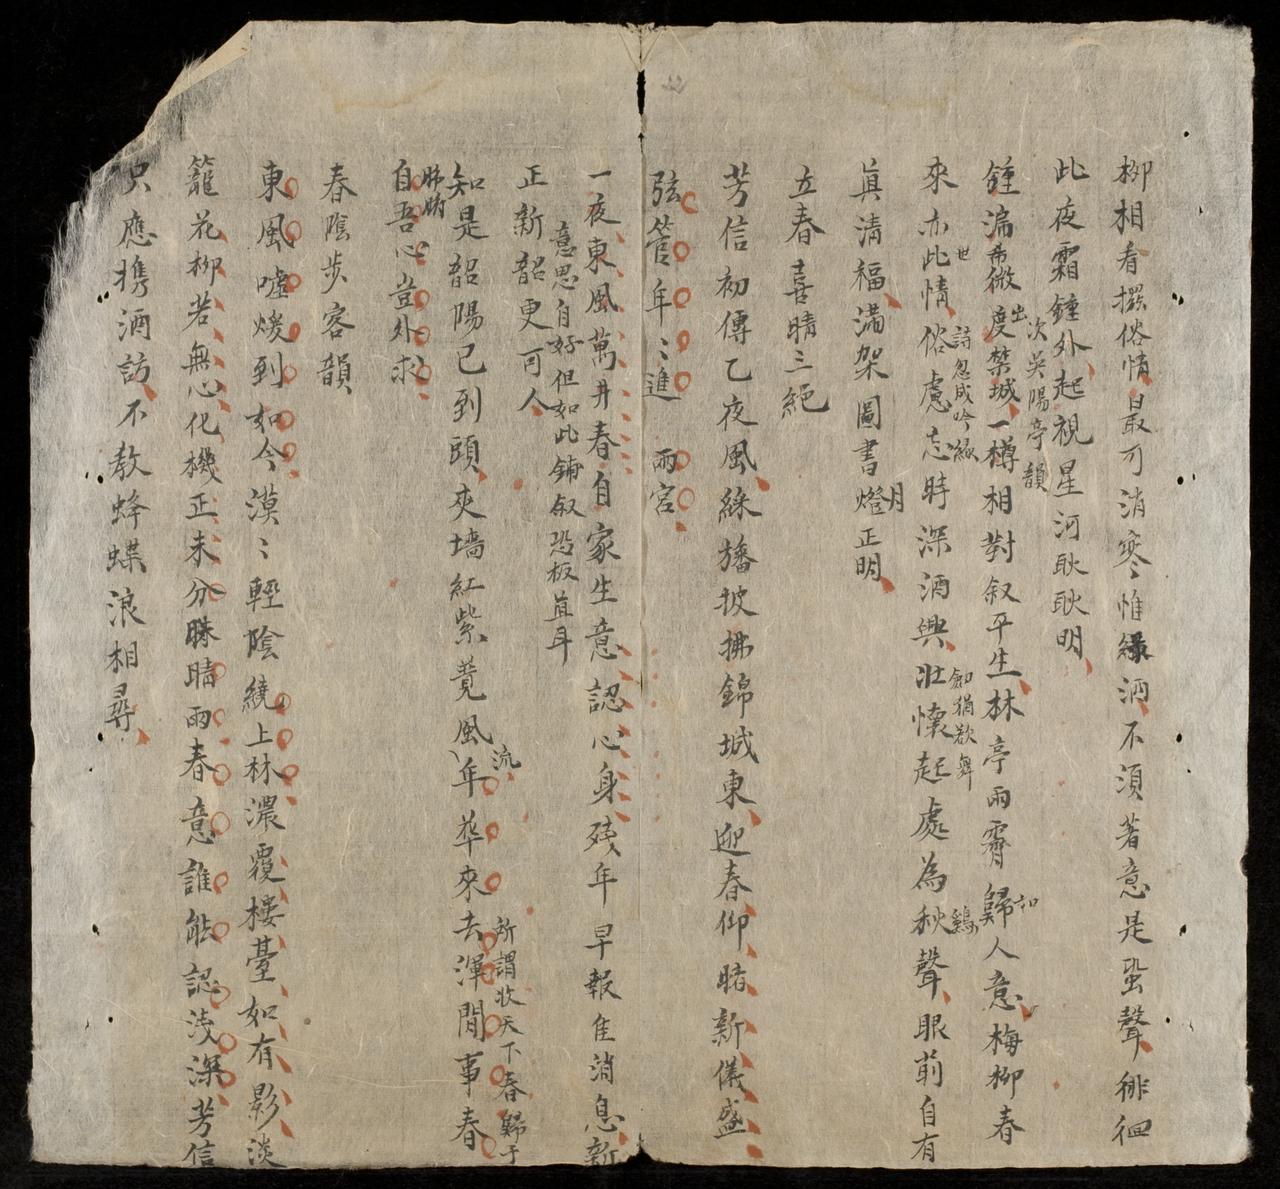 柳相看撥俗情最可消寒惟綠酒不須著意是蛩聲徘徊
此夜霜鍾外起視星河耿耿明
次吳陽亭韻
鍾漏希微度禁城一樽相對叙平生林亭雨霽歸人意梅柳春
出
如
來亦此情俗慮忘時深酒興壯懷起處為秋聲眼前自有
世
詩忽成吟緣
劍猶欲舞
鷄
真清福滿架圖書燈正明
月
立春喜晴三絕
芳信初傳乙夜風綵旛披拂錦城東迎春仰睹新儀盛
弦管年〻進兩宮
一夜東風萬井春自家生意認心身殘年早報佳消息新
意思自好但如此鋪叙恐板直耳
正新韶更可人
知是韶陽已到頭夾墻紅紫競風年華來去渾閒事春
流
所謂收天下春歸于
肺腑
自吾心豈外求
春陰步客韻
東風噓煖到如今漠〻輕陰繞上林濃覆樓臺如有影淡
籠花柳若無心化機正未分晴雨春意誰能認淺深芳信
只應携酒訪不教蜂蝶浪相尋